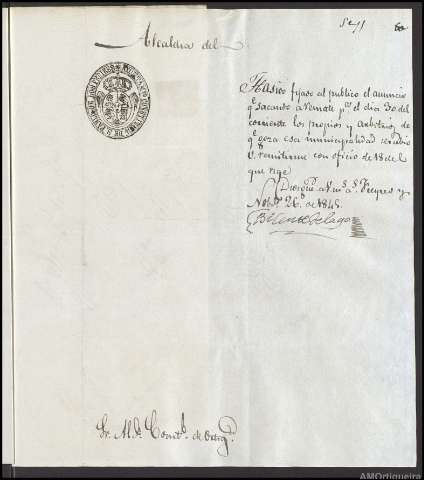 Alcaldia del
Ha sido fijado al publico el anuncio
qe sacando a remate pa el dia 30 del
corriente los propios y Arbitrios de
qe goza esa municipalidad se sirvio
V. remitirme con oficio de 18 del
que rige
Dios gue a V. ms as. Freyres y
Nobre 26,, de 1845
Vicente Lago
Sr. Ale Constl. de Ortiga
AMOrtigueira